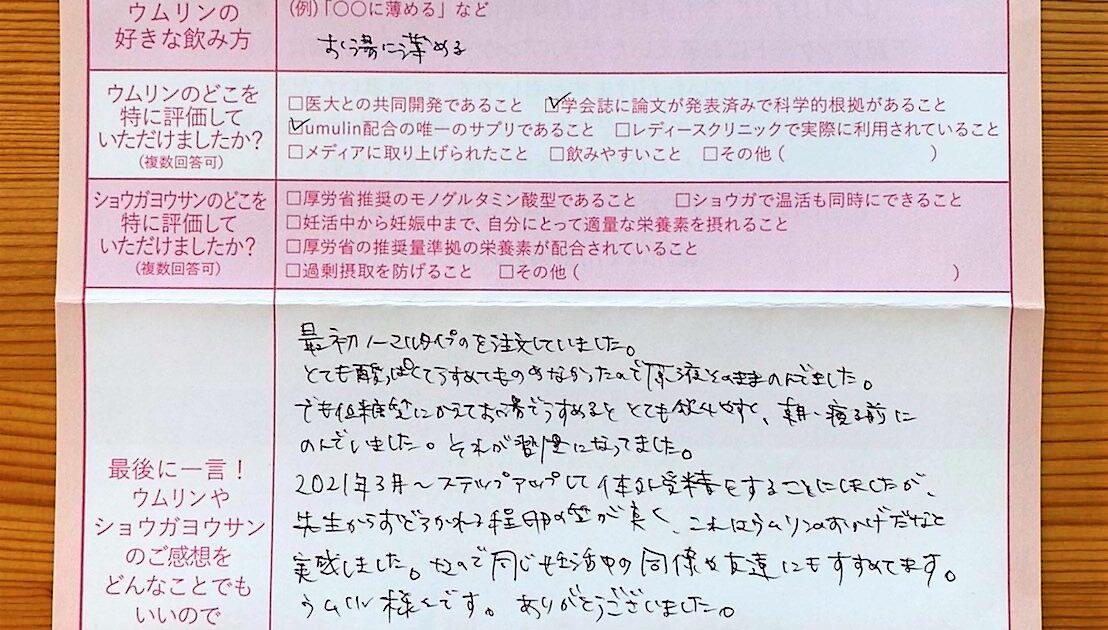 ウムリンの
好きな飲み方
(例)「○○に薄める」など
お湯に薄める
ウムリンのどこを
特に評価して
いただけましたか?
(複数回答可)
□医大との共同開発であること ☑学会誌に論文が発表済みで科学的根拠があること
☑umulin配合の唯一のサプリであること □レディースクリニックで実際に利用されていること
□メディアに取り上げられたこと □飲みやすいこと □その他( )
ショウガヨウサンのどこを
特に評価して
いただけましたか?
(複数回答可)
□厚労省推奨のモノグルタミン酸型であること □ショウガで温活も同時にできること
□妊活中から妊娠中まで、自分にとって適量な栄養素を摂れること
□厚労省の推奨量準拠の栄養素が配合されていること
□過剰摂取を防げること □その他( )
最後に一言!
ウムリンや
ショウガヨウサン
のご感想を
どんなことでも
いいので
最初ノーマルタイプのを注文していました。
とても酸っぱくてうすめてものめなかったので原液そのままのんでました。
でも低糖質にかえてお湯でうすめると とても飲みやすく、朝・寝る前に
のんでいました。それが習慣になってました。
2021年3月〜ステップアップして体外受精をすることにしましたが、
先生からおどろかれる程卵の質が良く、これはウムリンのおかげだなと
実感しました。なので同じ妊活中の同僚や友達にもすすめてます。
ウムリン様々です。ありがとうございました。